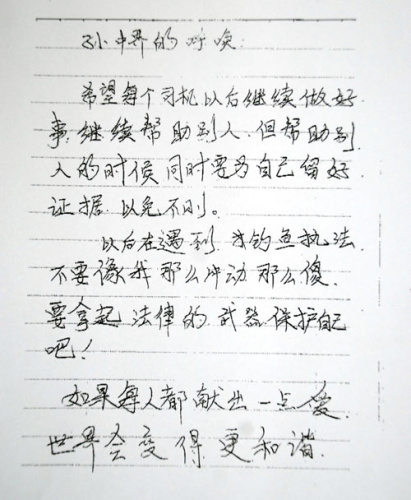 孙中界的呼唤:
希望每个司机以后继续做好
事,继续帮助别人.但帮助别
人的时候同时要为自己留好
证据.以免不则。
以后在遇到 钓鱼执法
不要像我那么冲动那么傻.
要拿起法律的武器保护自己
吧!
如果每人都献出一点爱.
世界会变得更和谐.